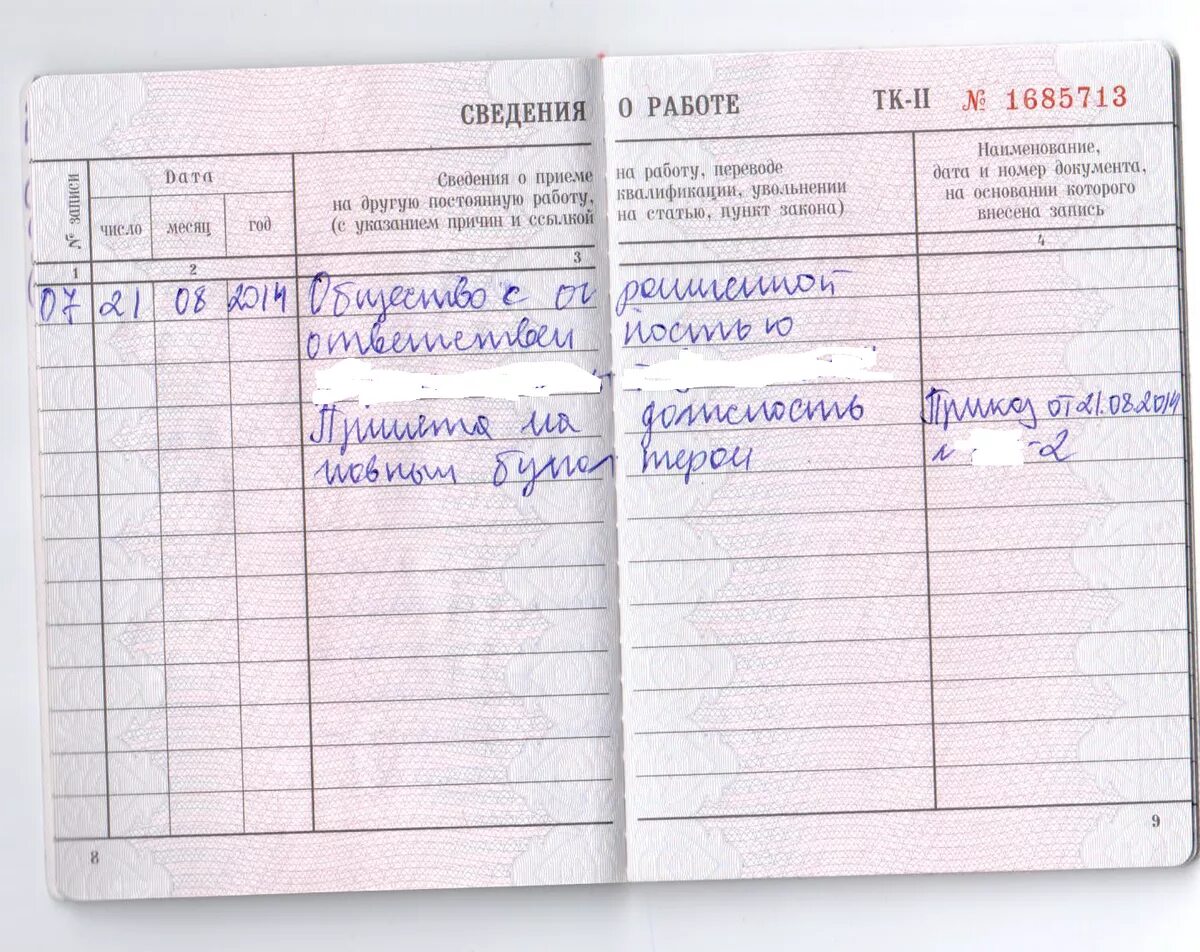 СВЕДЕНИЯ О РАБОТЕ ТК-II № 1685713
№ записи
Дата
число месяц год
Сведения о приеме
на другую постоянную работу,
(с указанием причин и ссылкой
на работу, переводе
квалификации, увольнении
на статью, пункт закона)
Наименование,
дата и номер документа,
на основании которого
внесена запись
1 2 3 4
07 21 08 2014 Общество с ограниченной
ответственностью
Принята на должность Приказ от 21.08.2014
главным бухгалтером № -2
8 9